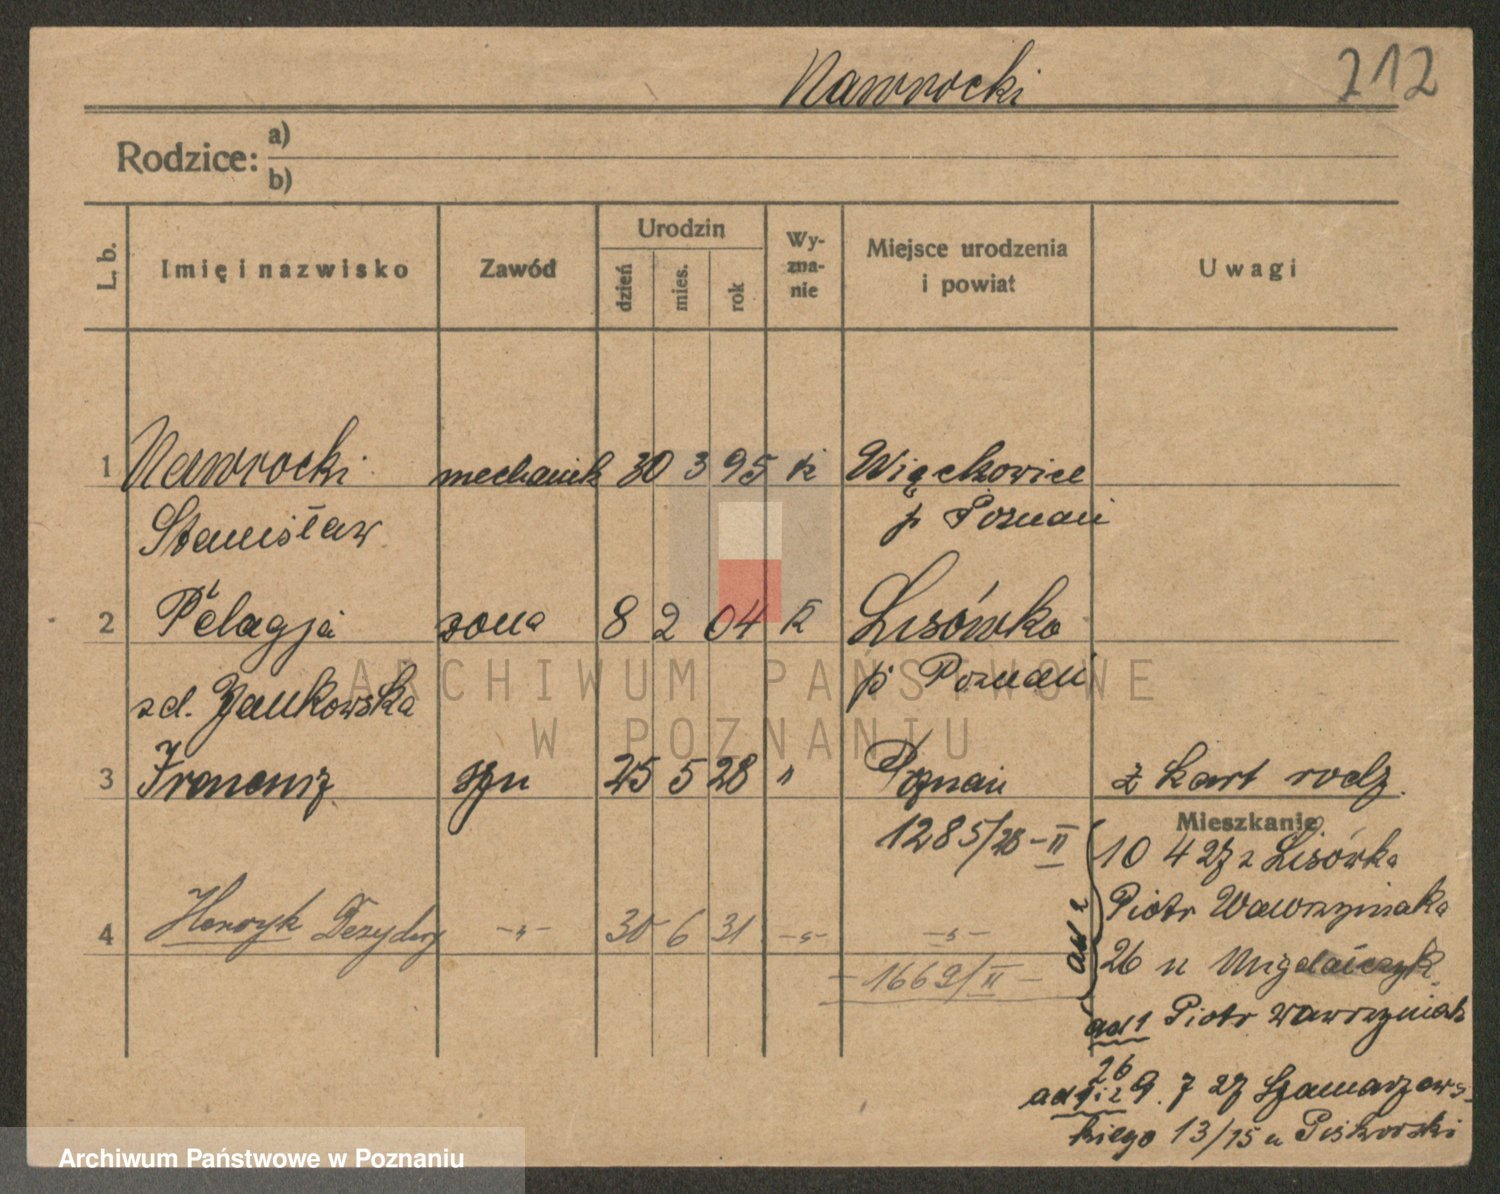 Nawrocki
212
Rodzice: a)
b)
L. b. Imię i nazwisko Zawód Urodzin dzień mies. rok Wy-zna-nie Miejsce urodzenia i powiat Uwagi
1 Nawrocki mechanik 30 3 95 k Więckowice
Stanisław p Poznań
2 Pelagja żona 8 2 04 k Lisówko
zd. Jankowska p Poznań
3 syn 25 5 28 " Poznań z kart rodz.
Mieszkanie
1285/28-II
ad 2
10 4 27 z Lisówka
Piotr Wawrzyniaka
4 Henryk Dezydery -"- 30 6 31 -"- -"-
26 u
-1669/II-
ad 1 Piotr Wawrzyniak
26
ad 1 i 2 9. 7 27 Szamarzews-
kiego 13/15 u Piskorski
ARCHIWUM PAŃSTWOWE
W POZNANIU
Archiwum Państwowe w Poznaniu